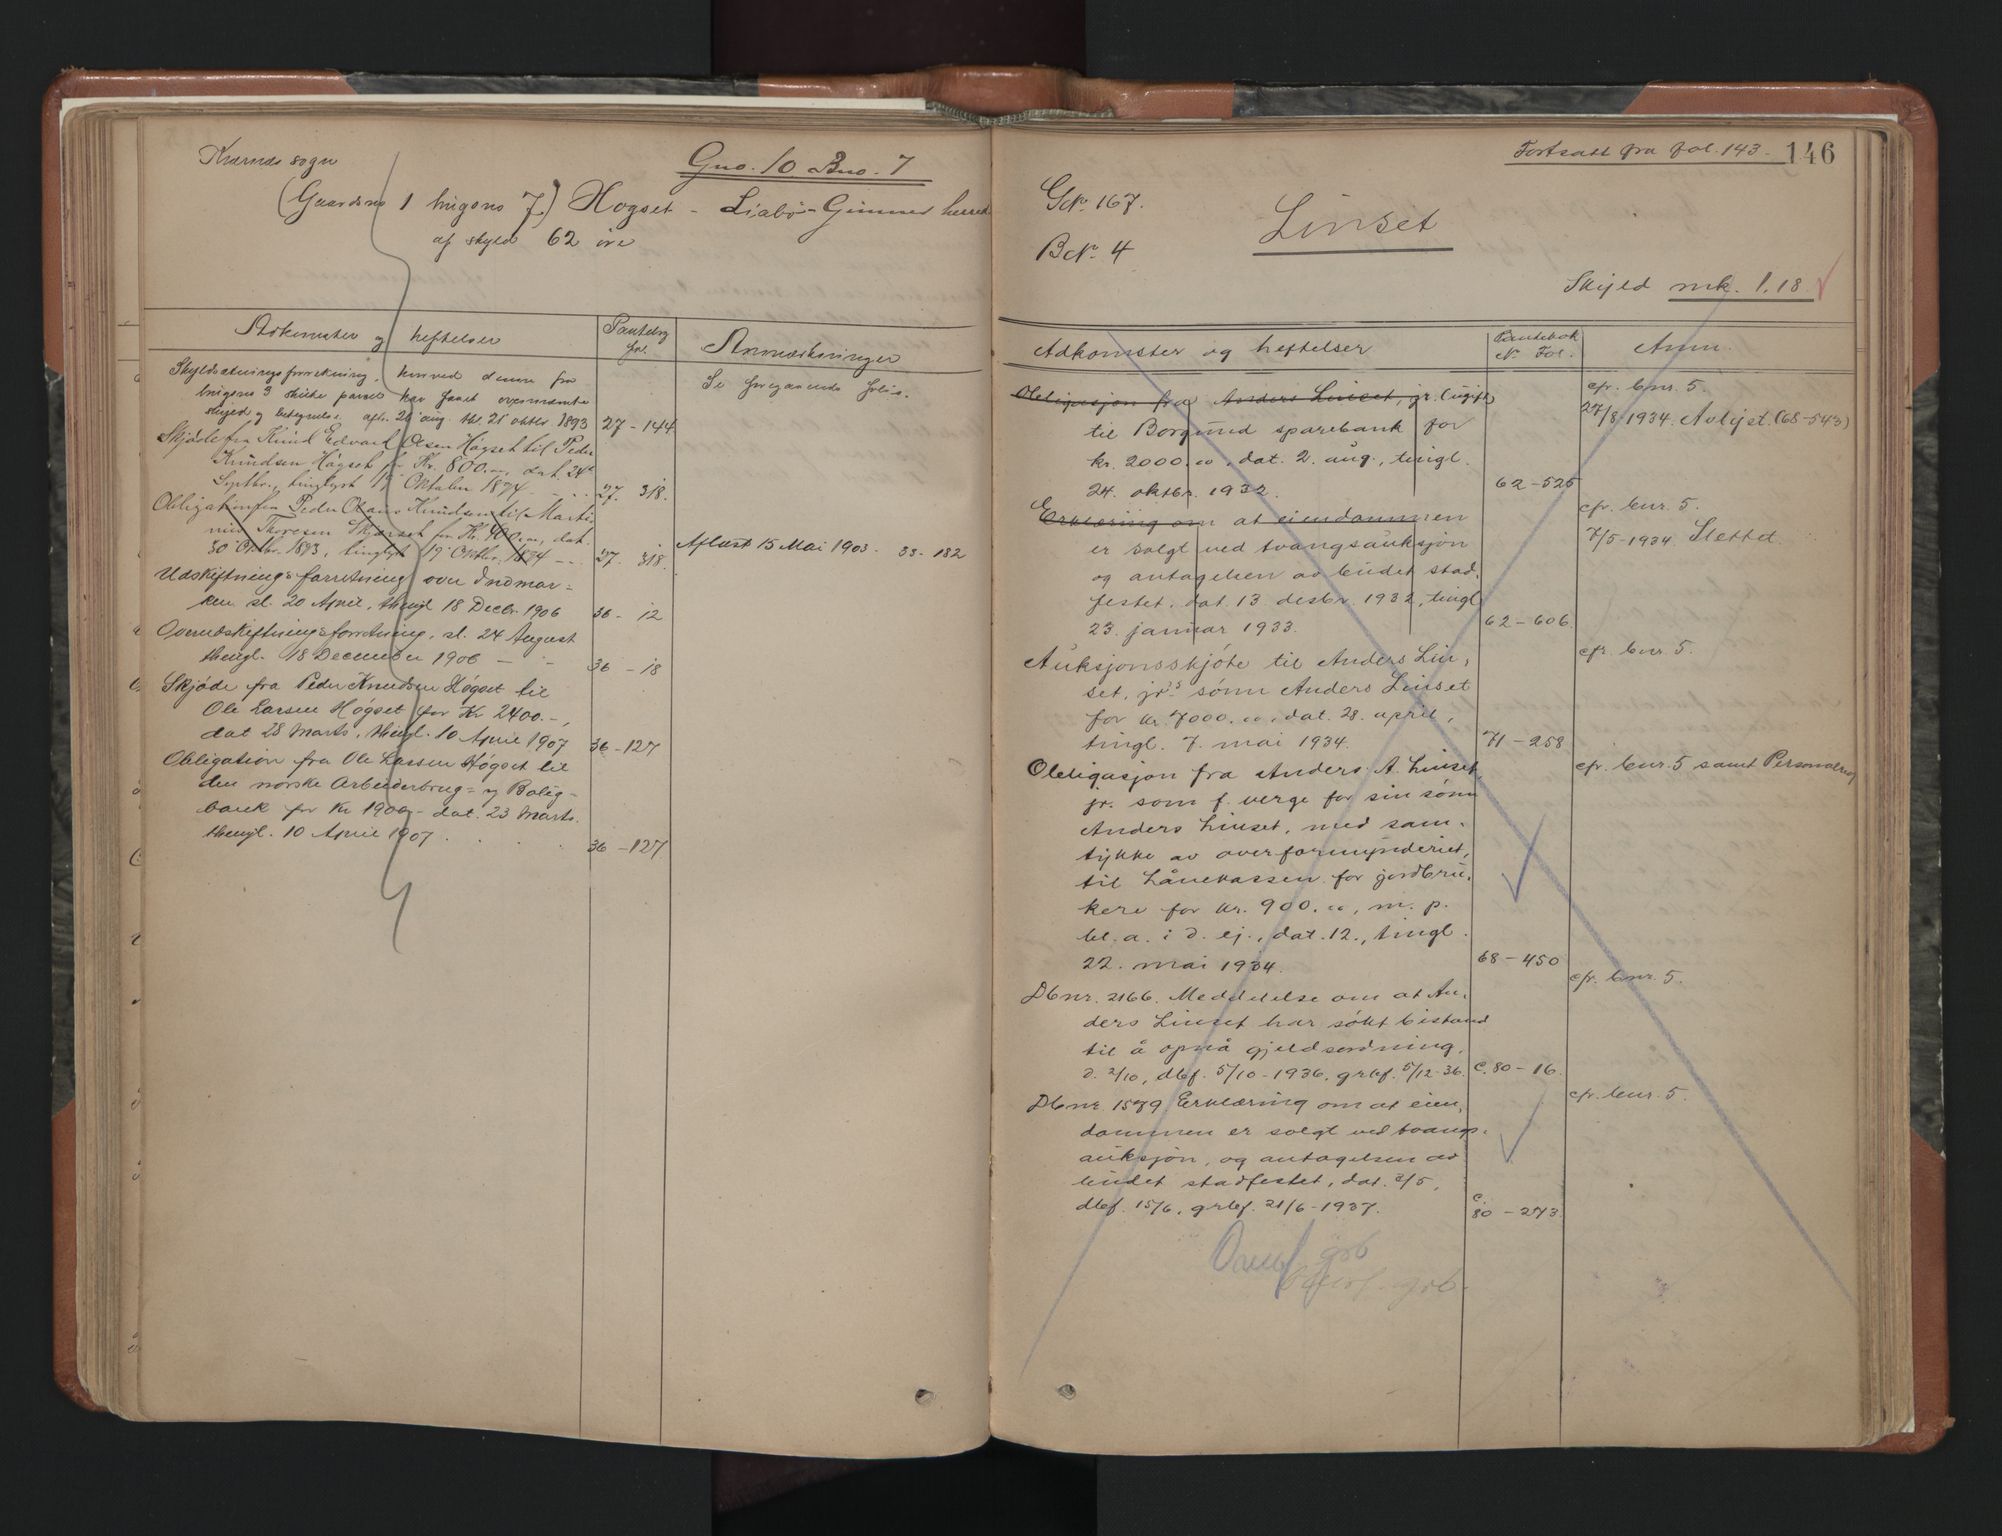 Kværnes sogn
Gno. 10 Bno. 7
(Gaardsno 1 brugsno 7) Høgset - Liabø - Gimnes herred
af skyld 62 øre
Adkomster og heftelser
Pantebog fol.
Anmærkninger
Skyldsætningsforretning, hvorved denne fra
brugsno 3 skilte parcel har faaet ovennævnte
skyld og betegnelse. afh. 26 aug. thl. 21 oktbr. 1893 27 - 144
Se foregaaende folio.
Skjøde fra Knud Edvard Olsen Høgset til Peder
Knudsen Høgset for Kr. 800.00, dat. 24de
Septbr., tinglyst 19 Oktober 1894 27. 318.
Obligation fra Peder Olaus Knudsen til Marti-
nus Thoresen Skjørset for Kr. 400.00, dat.
30 Oktbr. 1893, tinglyst 19 Oktbr. 1894 27. 318.
Aflæst 15 Mai 1903. 33 - 182
Udskiftningsforretning over Indmar-
ken sl. 20 April, thingl 18 Decbr. 1906 36 - 12
Overudskiftningsforretning, sl. 24 August
thingl. 18 December 1906 36 - 18
Skjøde fra Peder Knudsen Høgset til
Ole Larsen Høgset for Kr 2400.-,
dat 28 Marts, thingl. 10 April 1907 36 - 127
Obligation fra Ole Larsen Høgset til
den norske Arbeiderbrug- og Bolig-
bank for Kr 1900,- dat. 23 Marts.
thingl. 10 April 1907 36 - 127
Fortsatt fra fol. 143. 146
GNr. 167.
Linset
BNr. 4
Skyld mk. 1,18
Adkomster og heftelser
Pantebok
Nr. Fol.
Anm.
Obligasjon fra Anders Linset, jr. (ugift)
til Borgund sparebank for
kr. 2000.00, dat. 2. aug., tingl.
24. oktbr. 1932. 62 - 525
cfr. bnr. 5.
27/8 1934. Avlyst. (68-543)
Erklæring om at eiendommen
er solgt ved tvangsauksjon
og antagelsen av budet stad-
festet, dat. 13. desbr. 1932, tingl
23. januar 1933. 62 - 606.
cfr. bnr. 5.
7/5 - 1934. Slettet.
Auksjonsskjøte til Anders Lin-
set, jr's sønn Anders Linset
for kr. 7000.00, dat. 28. april,
tingl. 7. mai 1934. 71 - 258
cfr. bnr. 5.
Obligasjon fra Anders A. Linset,
jr. som f. verge for sin sønn
Anders Linset, med sam-
tykke av overformynderiet,
til Lånekassen for jordbru-
kere for kr. 900.00, m. p.
bl. a. i d. ej., dat. 12., tingl.
22. mai 1934. 68 - 450
cfr. bnr. 5 samt Personalreg
Dbnr. 2166. Meddelelse om at An-
ders Linset har søkt bistand
til å opnå gjeldsordning,
d. 2/10, dbf. 5/10 - 1936, grbf. 5/12-36. C. 80 - 16.
cfr. bnr. 5.
Dbnr 1579. Erklæring om at eien-
dommen er solgt ved tvangs-
auksjon, og antagelsen av
budet stadfestet, dat. 2/5,
dbf. 15/6, grbf. 21/6 - 1937. C. 80 - 273.
cfr. bnr. 5.
Overf grb
Overf. grb.